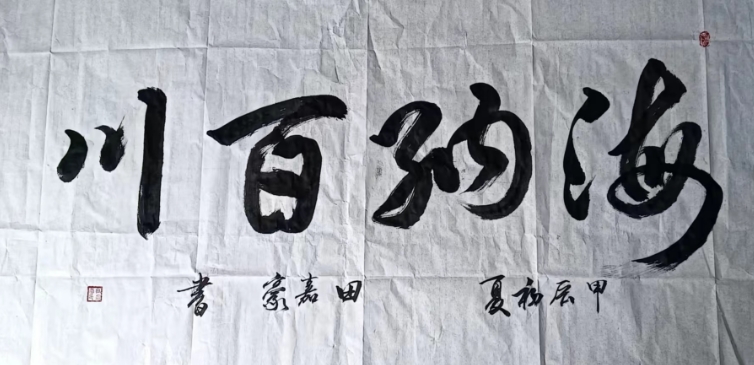 海纳百川
甲辰初夏 田嘉豪书